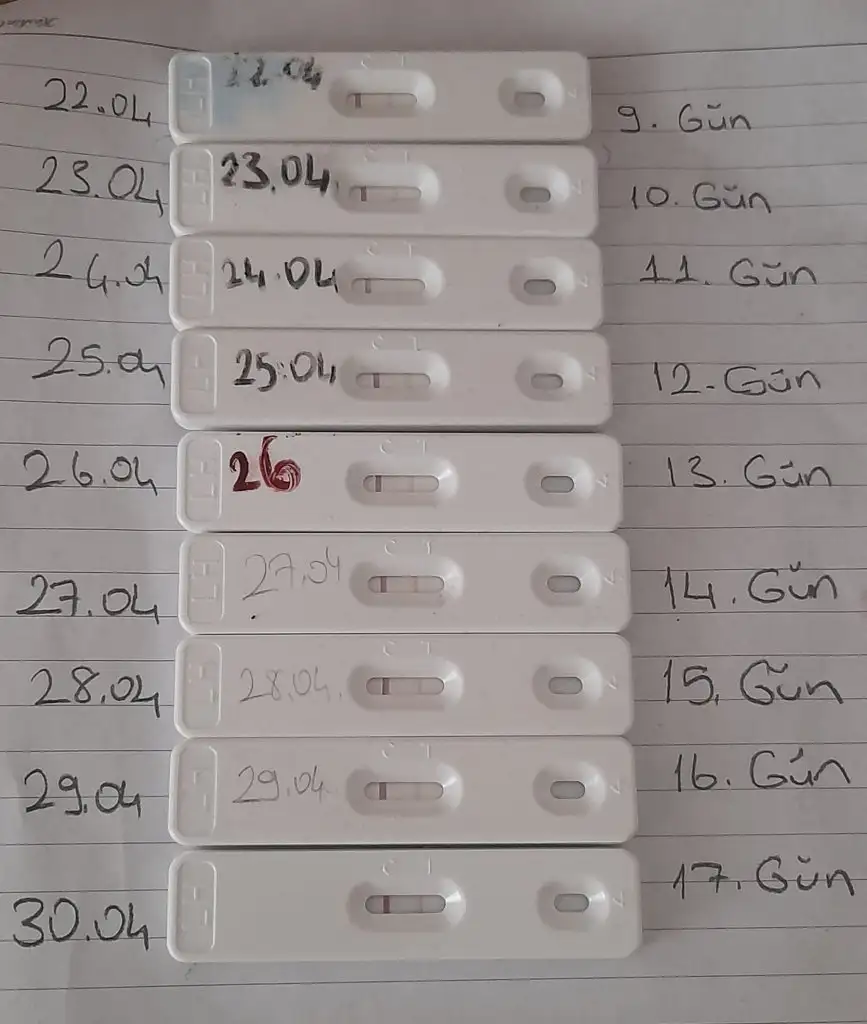 22.04 22.04 C T 9. Gün
LH
23.04 23.04 10. Gün
LH
24.04 24.04 C T 11. Gün
LH
25.04 25.04 C T 12. Gün
LH
26.04 26 C T 13. Gün
LH
27.04 27.04 C T 14. Gün
LH
28.04 28.04. C T 15. Gün
LH
29.04 29.04 C T 16. Gün
LH
30.04 C T 17. Gün
LH